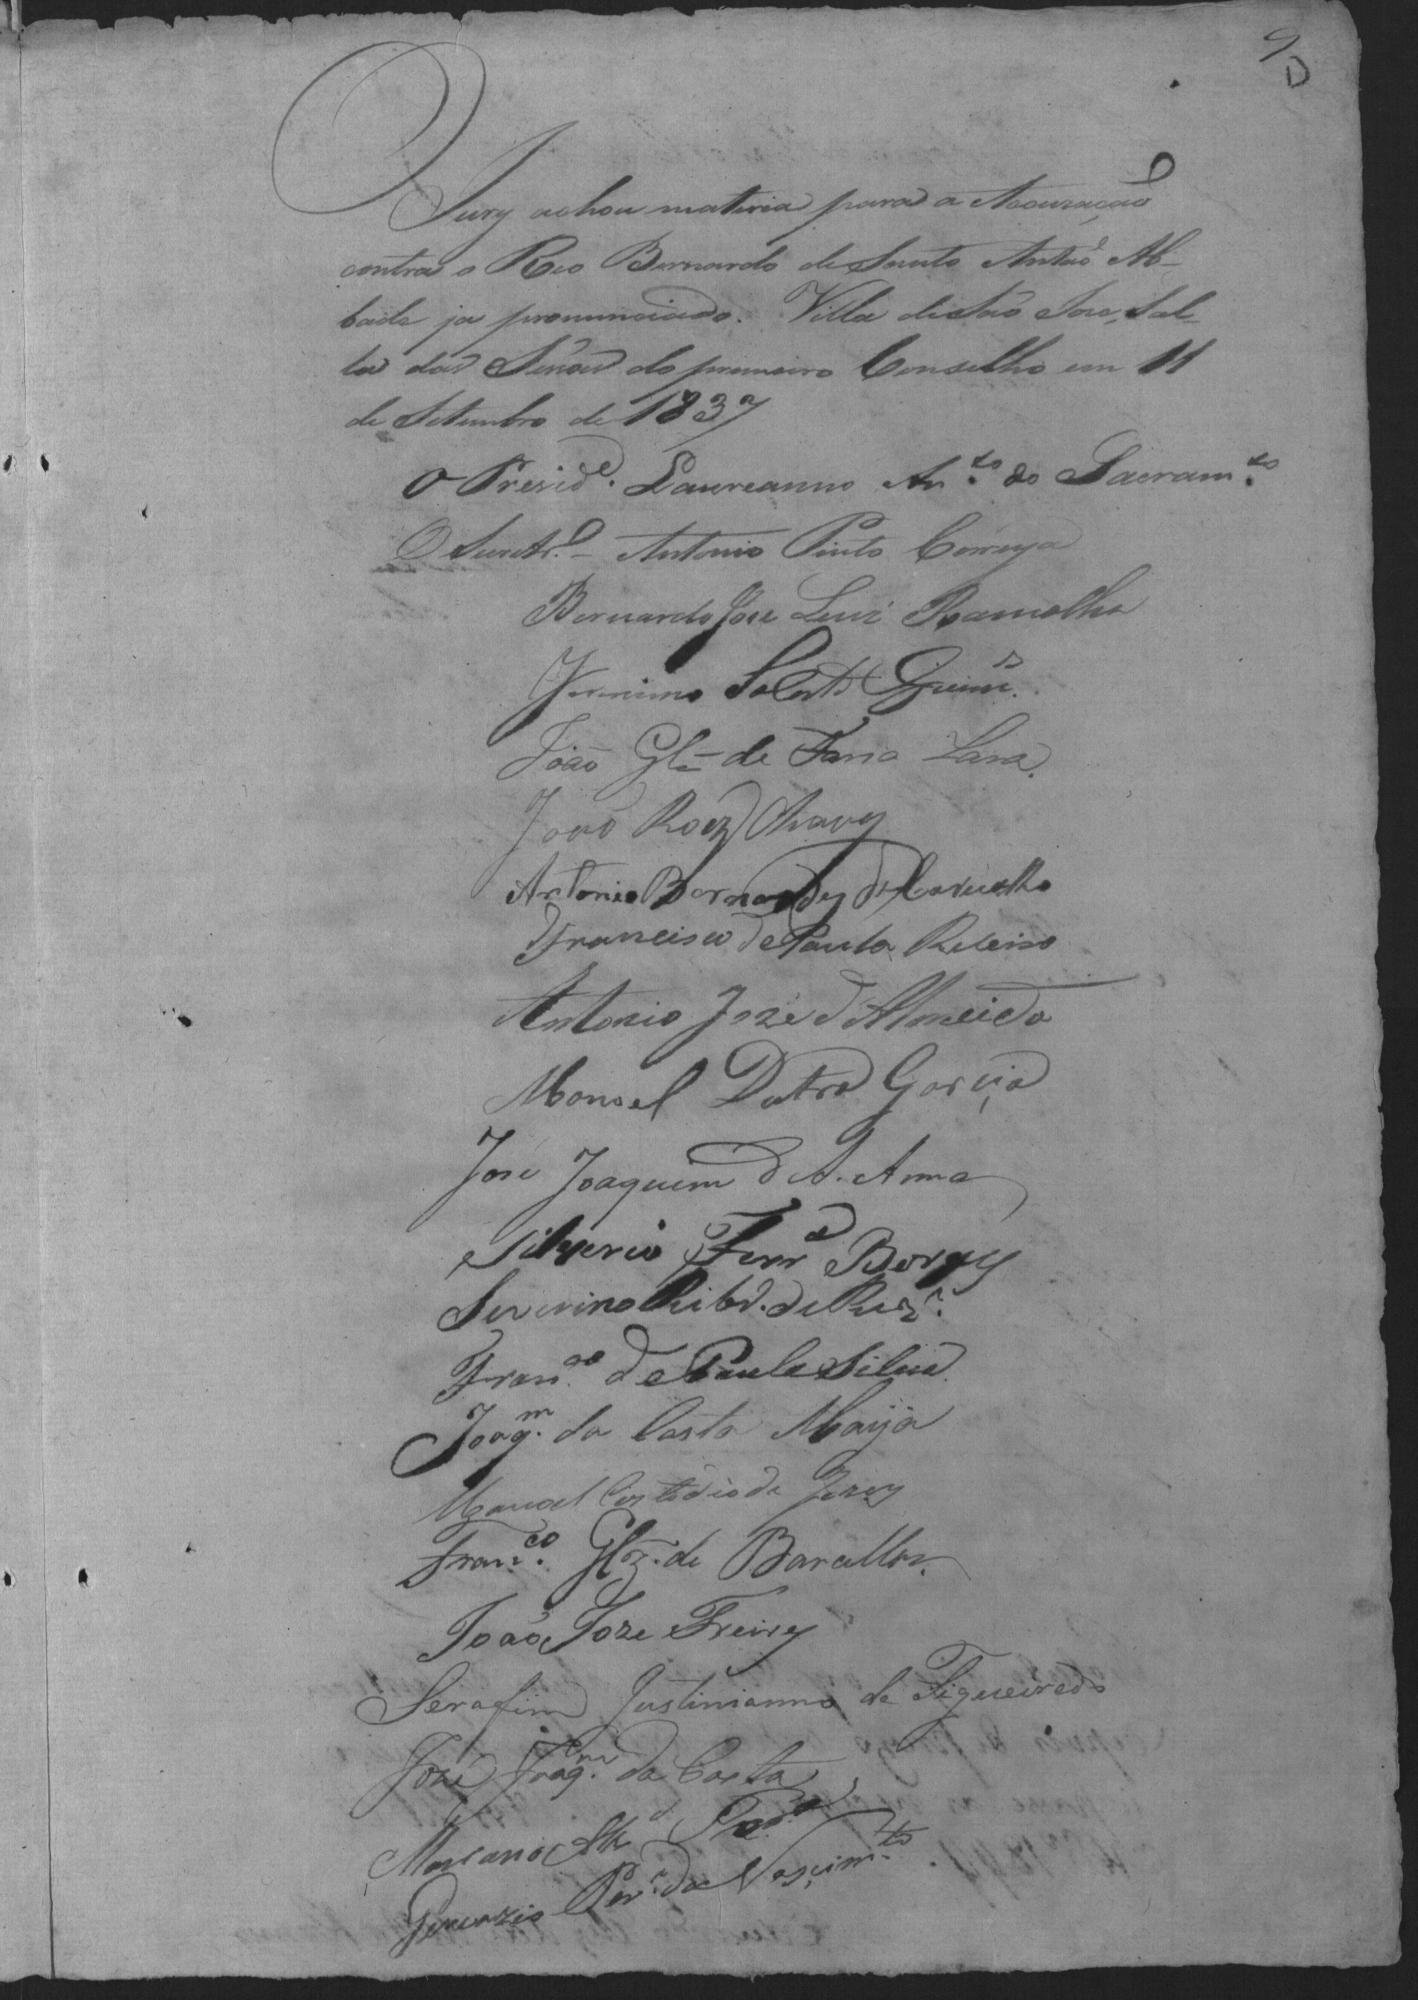 90
O Jury achou materia para a Acuzação
contra o Reo Bernardo de Santo Antão Ab-
bade ja pronunciado. Villa de São Jose, Sal-
la das do primeiro Conselho em 11
de Setembro de 1837
O Presid.e Laureanno An.to do Sacram.to
O Secretr.o - Antonio Pinto Correya
Bernardo Joze Luiz Ramalho
Jeronimo Guim.s
João Glz de Faria Lara.
João Roiz Chaves
Antonio Bernardes de Carvalho
Francisco de Paula Ribeiro
Antonio Jozé d'Almeida
Manoel Dutra Garcia
José Joaquim d S. Anna
Silverio Ferr.a Borges
Severino Ribr.o de Rez.e
Fran.co de Paula Silva
Joaq.m da Costa Maija
Manoel Custodio de Jezus
Fran.co Glz. de Barcellos
João Joze Freire
Serafim Justinianno de Figueiredo
Jozé Joaq.m da Costa
Marianno
Per.a do Nascim.to